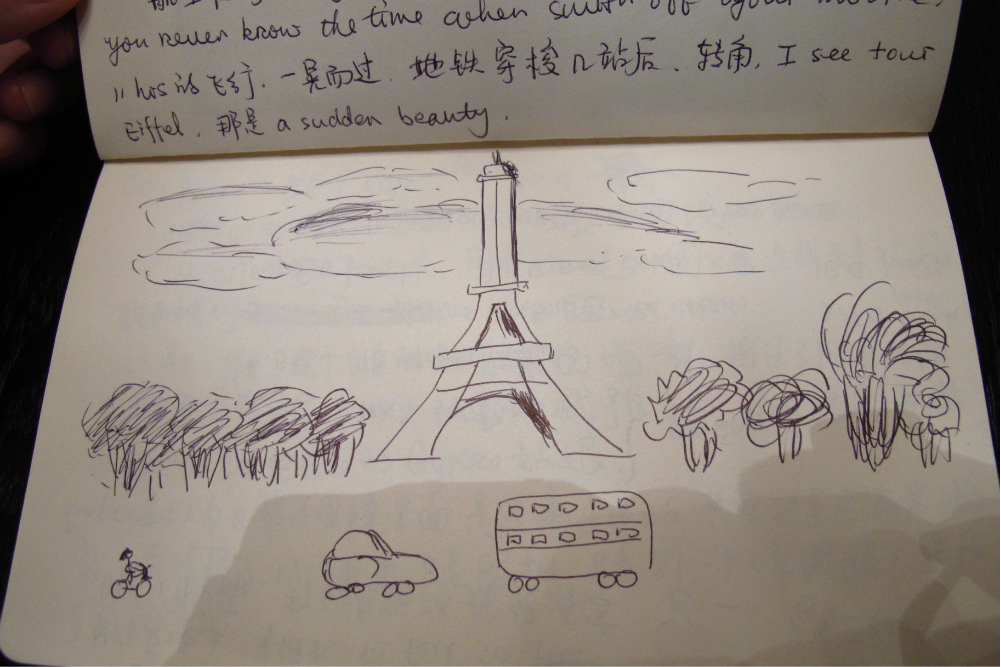 you never know the time when switch off your mobile,
11 hrs的飞行. 一晃而过. 地铁穿梭几站后. 转角, I see tour
Eiffel, 那是 a sudden beauty.